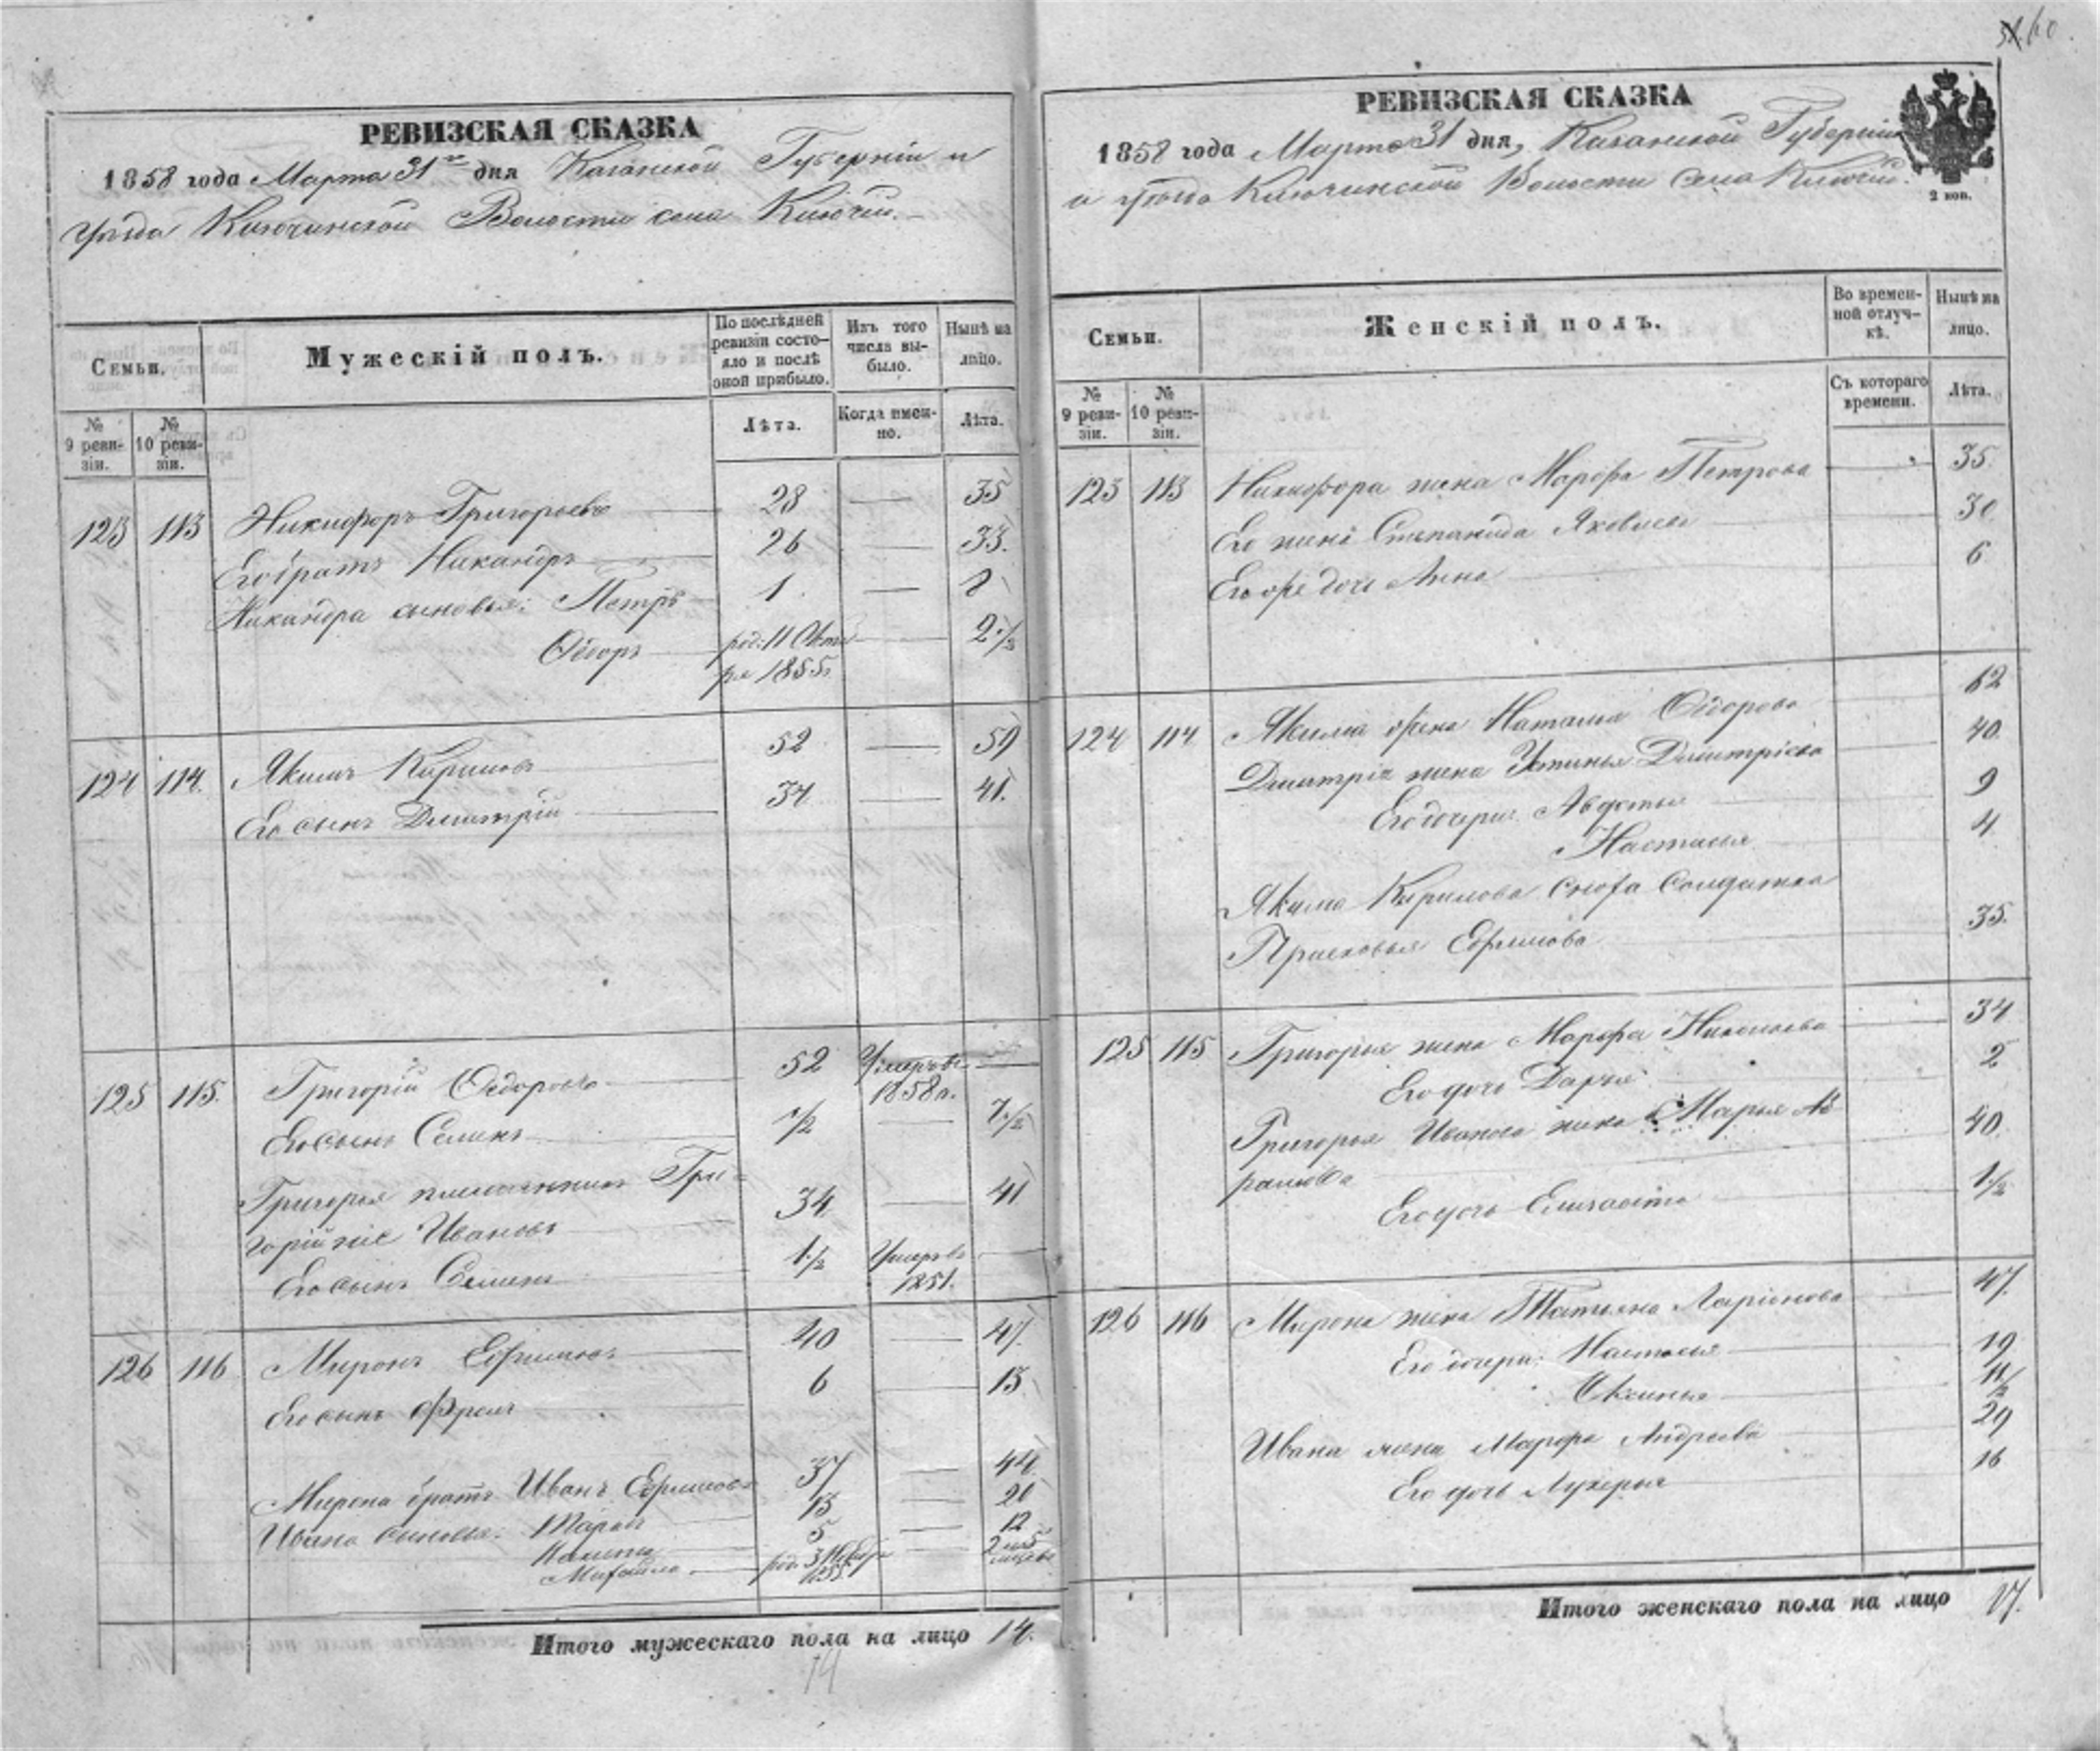 60.
РЕВИЗСКАЯ СКАЗКА
1858 года Марта 31го дня Казанской Губернiи и
уѣзда Ключинской Волости села Ключи.
Семьи.
Мужескiй полъ.
По послѣдней ревизiи состояло и послѣ оной прибыло.
Изъ того числа выбыло.
Нынѣ на лицо.
№ 9 ревизiи.
№ 10 ревизiи.
Лѣта.
Когда именно.
Лѣта.
123 113 Никифоръ Григорьевъ 28 — 35
Его братъ Никандръ 26 — 33.
Никандра сыновья: Петръ 1 — 8
Ѳедоръ род. 11 Октября 1855 г. — 2 1/2
124 114. Якимъ Кириловъ 52 — 59
Его сынъ Дмитрiй 34 — 41.
125 115. Григорiй Ѳедоровъ 52 Умеръ въ 1858 г. —
Его сынъ Семенъ 1/2 — 7 1/2
Григорья племянникъ Гри-
горiй же Ивановъ 34 — 41
Его сынъ Семенъ 1 1/2 Умеръ въ 1851. —
126 116 Миронъ Ефимовъ 40 — 47.
Его сынъ Ефремъ 6 — 13
Мирона братъ Иванъ Ефимовъ 37 — 44
Ивана сыновья: 13 — 20
5 — 12
Михайло род. 3 1855 — 2
Итого мужескаго пола на лицо 14.
14
РЕВИЗСКАЯ СКАЗКА
1858 года Марта 31 дня, Казанской Губернiи
и уѣзда Ключинской Волости села Ключи.
2 коп.
Семьи.
Женскiй полъ.
Во временной отлучкѣ.
Нынѣ на лицо.
№ 9 ревизiи.
№ 10 ревизiи.
Съ котораго времени.
Лѣта.
123 113 Никифора жена Марфа Петрова — 35.
Его жена Степанида Яковлева 30
Его же дочь Анна 6
124 114 Якима жена Наталья Ѳедорова 62
Дмитрiя жена Устинья Дмитрiева 40.
Его дочери: Авдотья 9
Настасья 4
Якима Кирилова сноха Солдатка
Прасковья Ефимова 35.
125 115 Григорья жена Марфа Николаева 34
Его дочь Дарья 2
Григорья Иванова жена Марья Аб-
рамова 40.
Его дочь Елизавета 1 1/2
126 116 Мирона жена Татьяна Ларiонова 47.
Его дочери: Настасья 19
Аксинья 11 1/2
Ивана жена Марфа Андреева 29
Его дочь Лукерья 16
Итого женскаго пола на лицо 17.